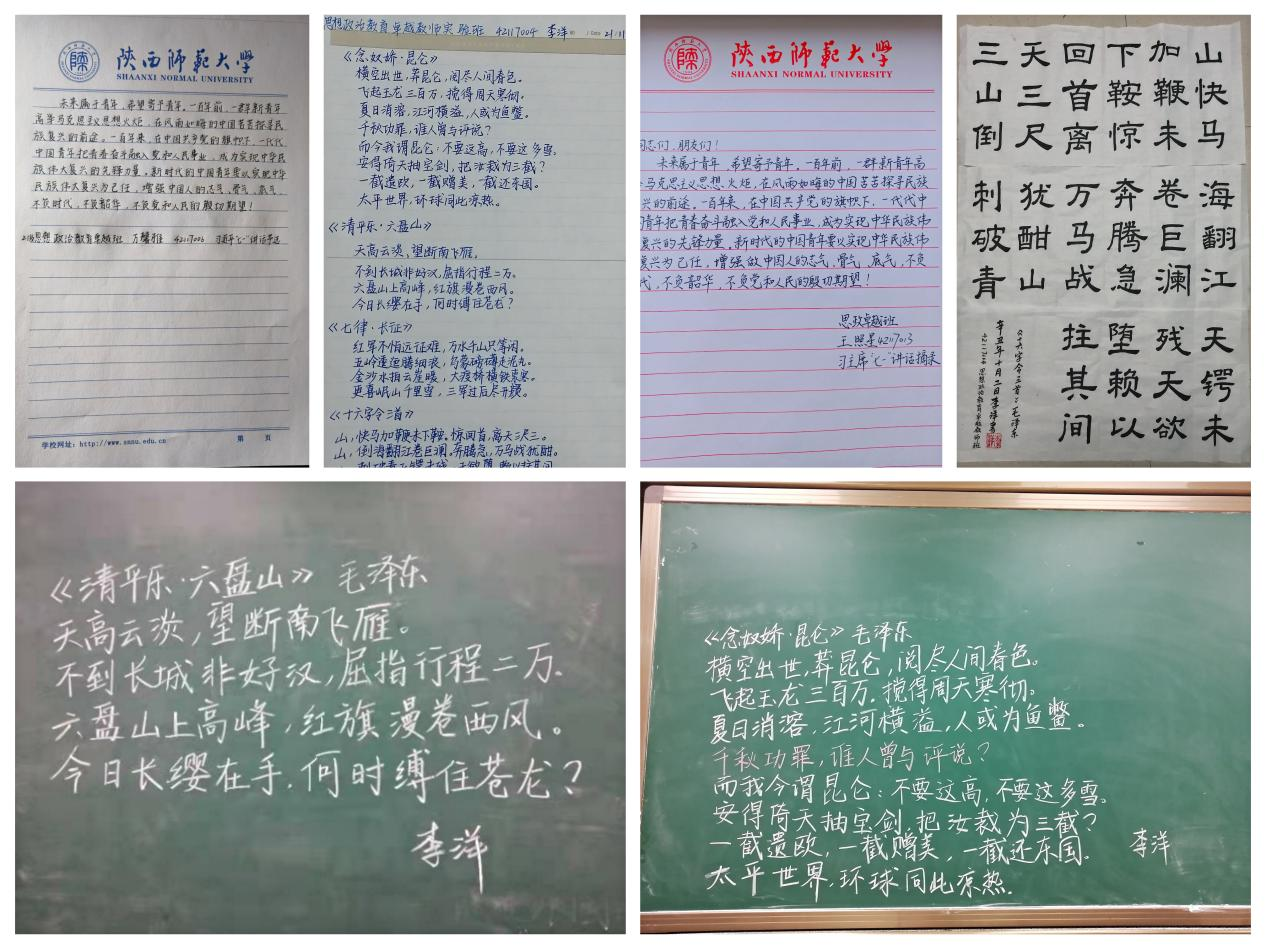 陕西师范大学
SHAANXI NORMAL UNIVERSITY
未来属于青年，希望寄予青年。一百年前，一群新青年
高举马克思主义思想火炬，在风雨如晦的中国苦苦探寻民
族复兴的前途。一百年来，在中国共产党的旗帜下，一代代
中国青年把青春奋斗融入党和人民事业，成为实现中华民
族伟大复兴的先锋力量。新时代的中国青年要以实现中华
民族伟大复兴为己任，增强中国人的志气、骨气、底气，
不负时代，不负韶华，不负党和人民的殷切期望！
思想政治教育卓越班 万馨雅 42117006 习近平"七一"讲话节选
学校网址：http://www.snnu.edu.cn 第 页
思想政治教育卓越教师实验班 42117004 李洋
《念奴娇·昆仑》
横空出世，莽昆仑，阅尽人间春色。
飞起玉龙三百万，搅得周天寒彻。
夏日消溶，江河横溢，人或为鱼鳖。
千秋功罪，谁人曾与评说？
而今我谓昆仑：不要这高，不要这多雪。
安得倚天抽宝剑，把汝裁为三截？
一截遗欧，一截赠美，一截还东国。
太平世界，环球同此凉热。
《清平乐·六盘山》
天高云淡，望断南飞雁。
不到长城非好汉，屈指行程二万。
六盘山上高峰，红旗漫卷西风。
今日长缨在手，何时缚住苍龙？
《七律·长征》
红军不怕远征难，万水千山只等闲。
五岭逶迤腾细浪，乌蒙磅礴走泥丸。
金沙水拍云崖暖，大渡桥横铁索寒。
更喜岷山千里雪，三军过后尽开颜。
《十六字令三首》
山，快马加鞭未下鞍。惊回首，离天三尺三。
山，倒海翻江卷巨澜。奔腾急，万马战犹酣。
陕西师范大学
SHAANXI NORMAL UNIVERSITY
同志们，朋友们！
未来属于青年，希望寄予青年。一百年前，一群新青年高
马克思主义思想火炬，在风雨如晦的中国苦苦探寻民族
兴的前途。一百年来，在中国共产党的旗帜下，一代代中
国青年把青春奋斗融入党和人民事业，成为实现中华民族伟
复兴的先锋力量。新时代的中国青年要以实现中华民族伟
复兴为己任，增强做中国人的志气、骨气、底气，不负
代，不负韶华，不负党和人民的殷切期望！
思政卓越班
王熙星42117013
习主席"七一"讲话摘录
山快马
加鞭未
下鞍惊
回首离
天三尺
三山倒
海翻江
卷巨澜
奔腾急
万马战
犹酣山
刺破青
天锷未
残天欲
堕赖以
拄其间
《十六字令三首》毛泽东
辛丑年十月二日李洋书
42117004 思想政治教育卓越教师班
《清平乐·六盘山》 毛泽东
天高云淡，望断南飞雁。
不到长城非好汉，屈指行程二万。
六盘山上高峰，红旗漫卷西风。
今日长缨在手，何时缚住苍龙？
李洋
《念奴娇·昆仑》毛泽东
横空出世，莽昆仑，阅尽人间春色。
飞起玉龙三百万，搅得周天寒彻。
夏日消溶，江河横溢，人或为鱼鳖。
千秋功罪，谁人曾与评说？
而我今谓昆仑：不要这高，不要这多雪。
安得倚天抽宝剑，把汝裁为三截？
一截遗欧，一截赠美，一截还东国。
太平世界，环球同此凉热。
李洋